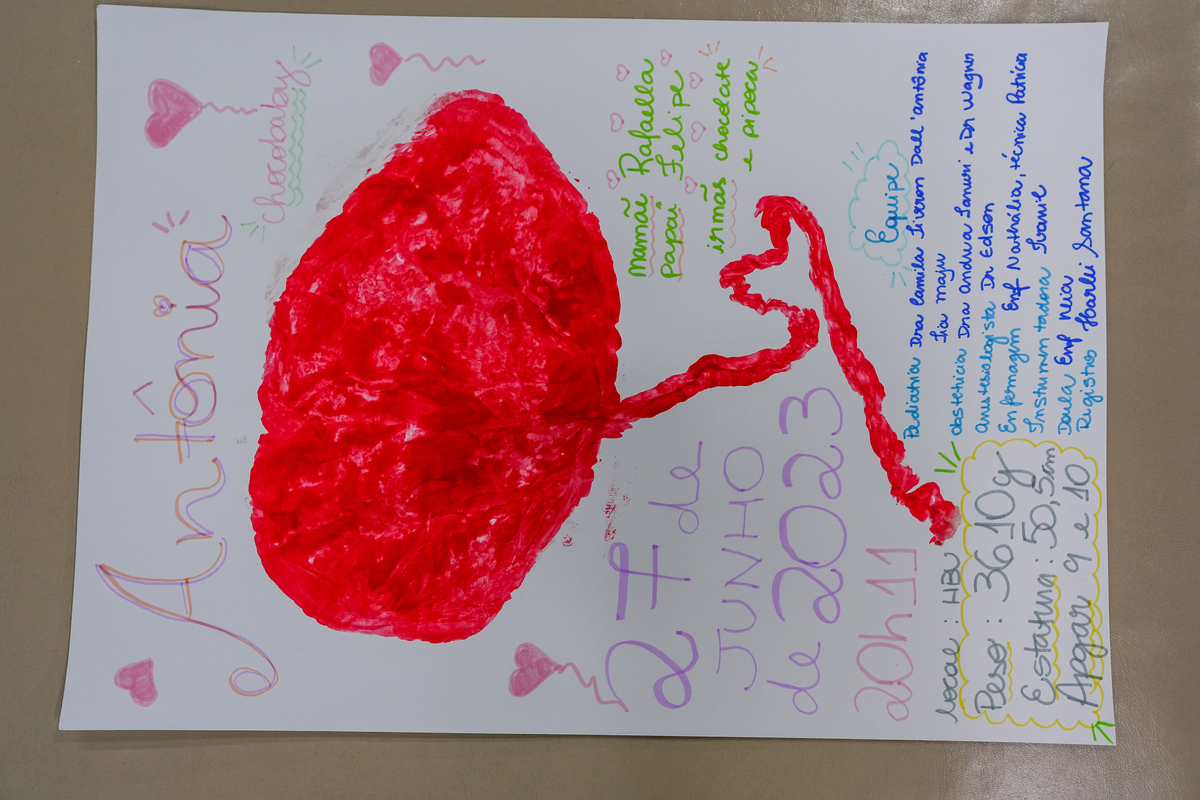 Antônia
chocobaby
mamãe Rafaella
papai Felipe
irmãs chocolate
e pipoca
27 de
JUNHO
de 2023
20h11
Equipe
Pediatria Dra Camila Siveron Dall'antônia
Tia maju
obstetricia Dra andrea Sanuri e Dr Wagner
Anestesiologista Dr Edson
Enfermagem Enf Nathália, técnica Patrícia
Instrumentadora Ivanil
Doula Enf Neia
Registros Harlei Santana
local: HBU
Peso: 3610g
Estatura: 50,5cm
Apgar 9 e 10